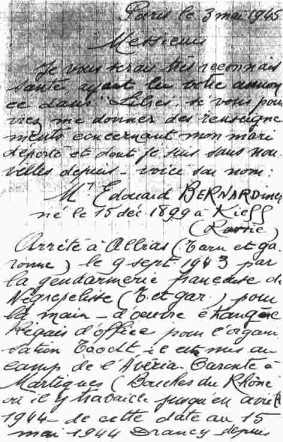 Paris le 3 mai 1945
Messieurs
Je vous serais très reconnais
sante ayant lu votre annon
ce dans Libres, si vous pour
riez me donner des renseigne
ments concernant mon mari
déporté et dont je suis sans nou
velles depuis - voici son nom:
Mr Edouard BERNARD
né le 15 déc 1899 à Kieff
(Russie)
Arrêté à Albias (Tarn et ga
ronne) le 9 sept 1943 par
la gendarmerie française de
Nègrepelisse (T et gar.) pour
la main-d'oeuvre étrangère
d'office pour l'organi
sation Taodt il est mis au
camp de Caronte à
Martigues (Bouches du Rhône
où il y travaille jusqu'en avril
1944 - de cette date au 15
mai 1944 Drancy depuis